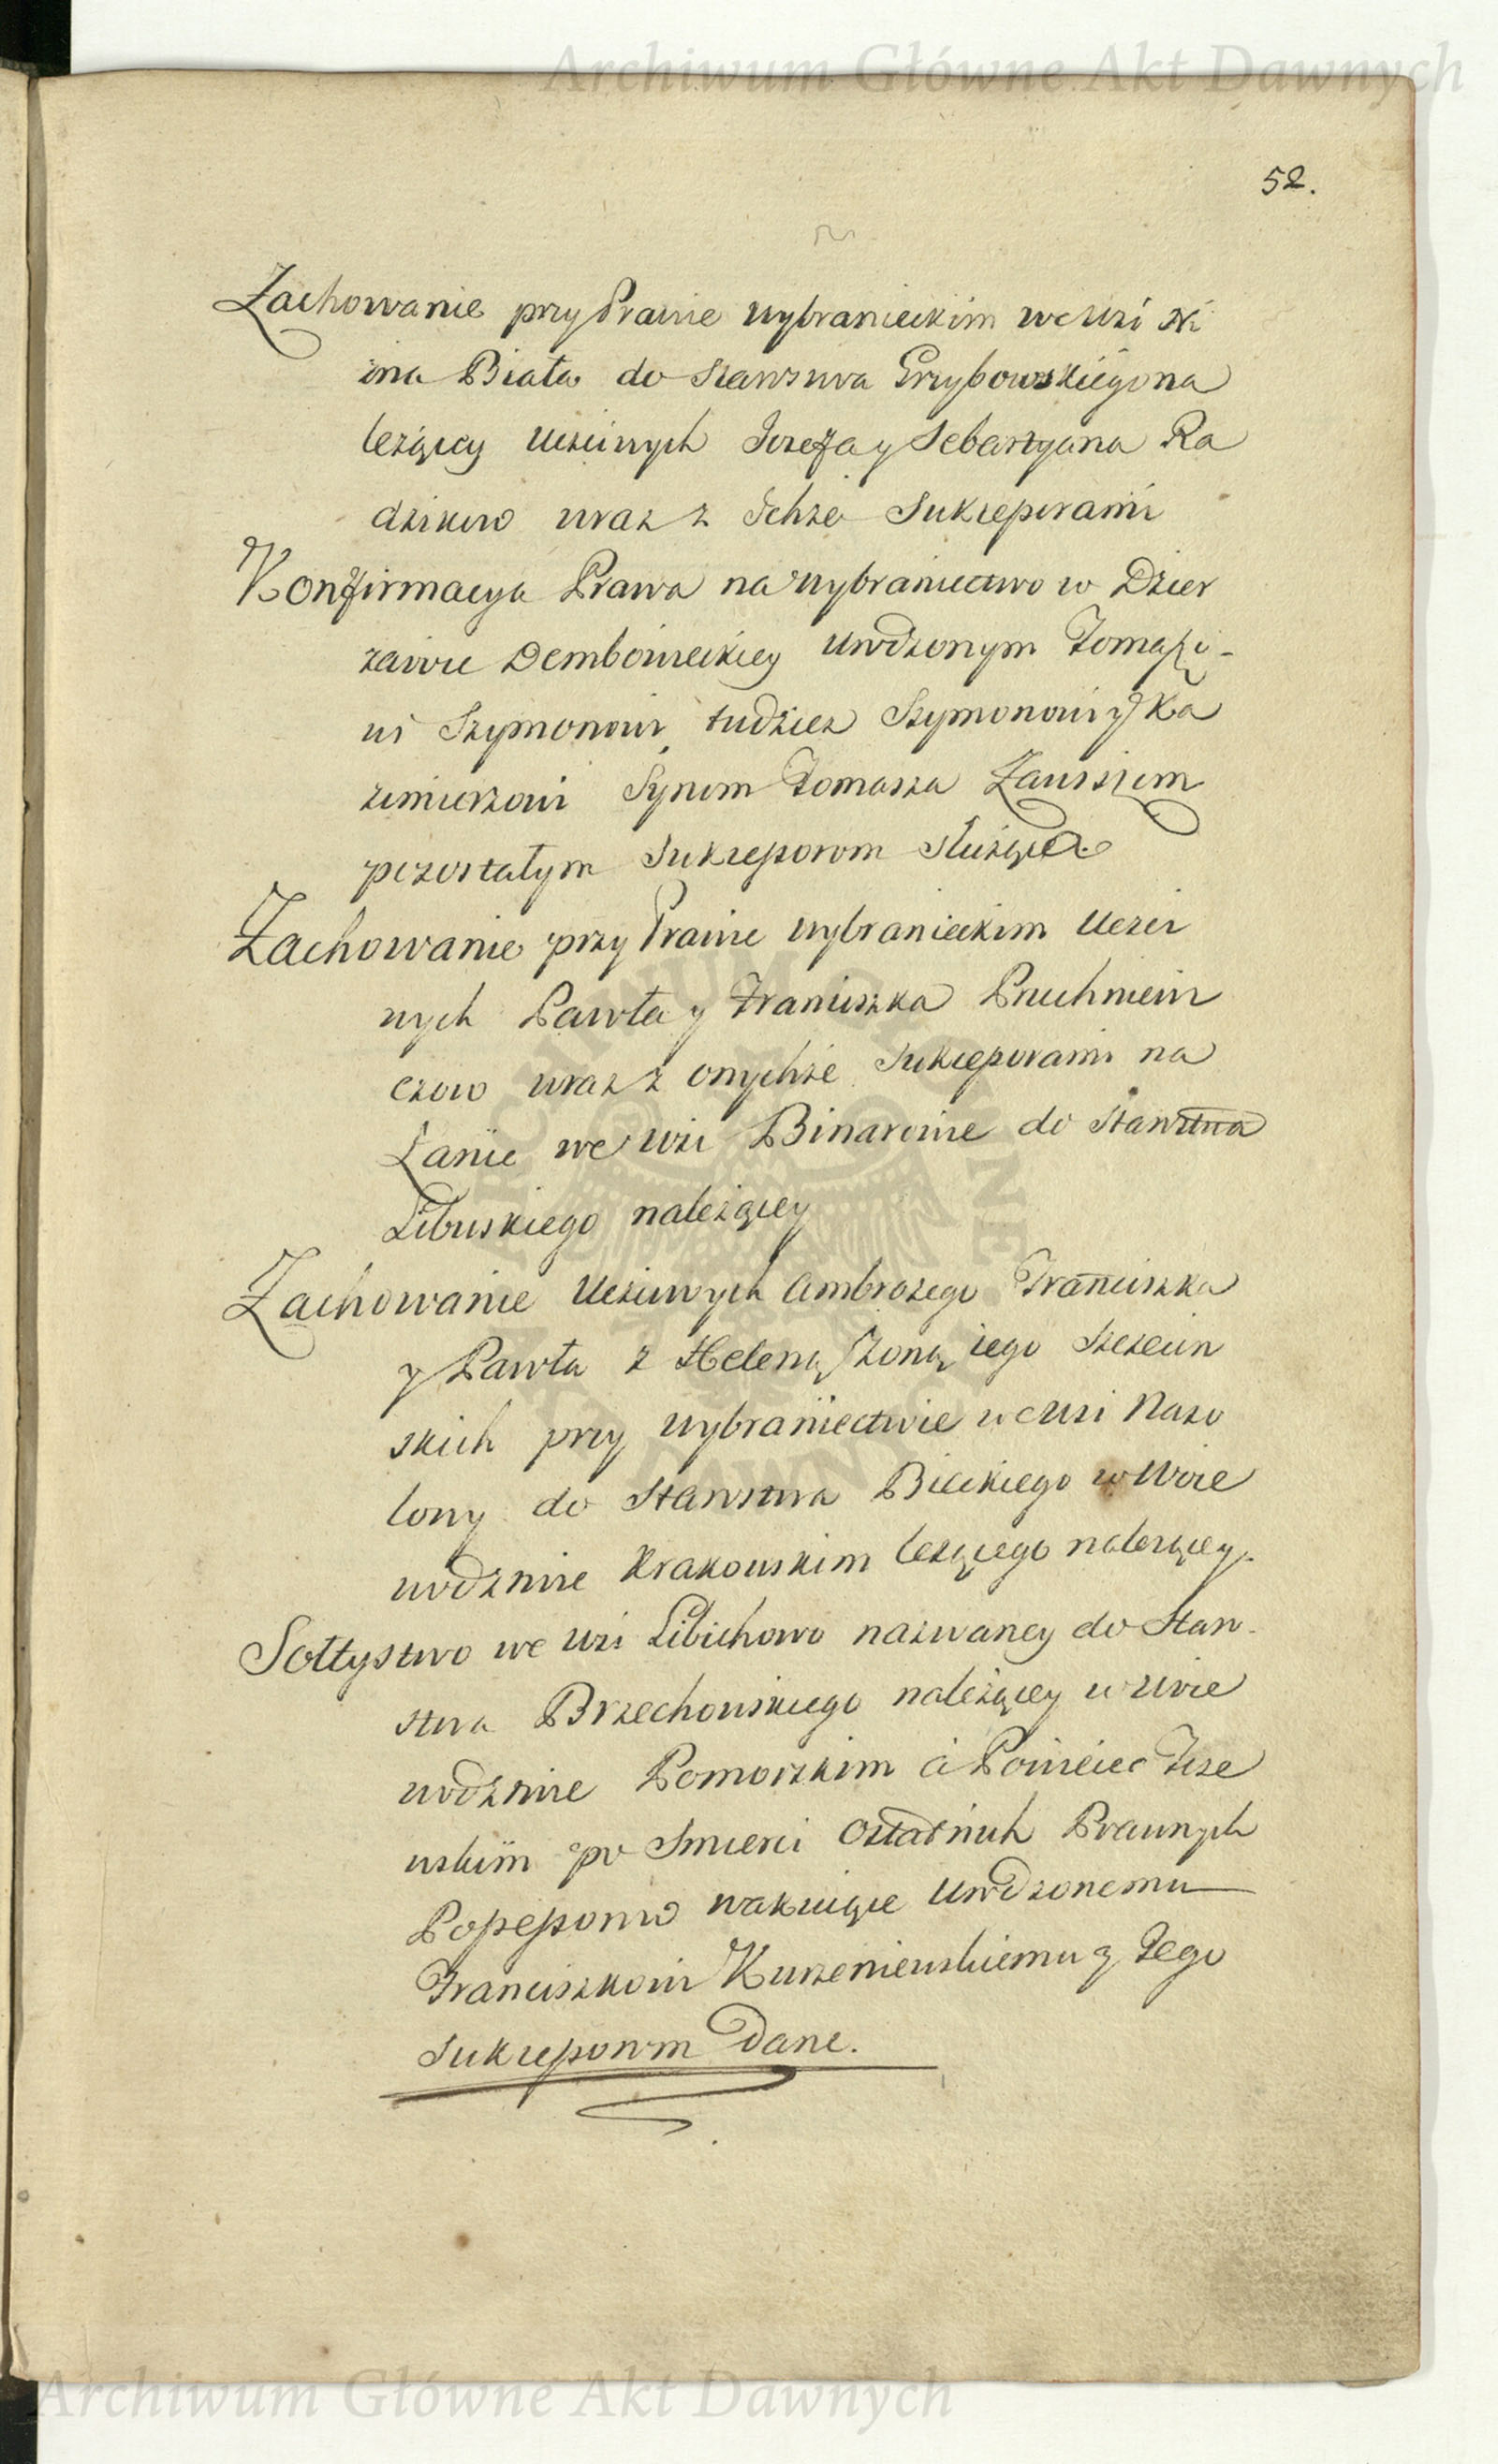 Archiwum Główne Akt Dawnych
52.
Zachowanie przy Prawie wybranieckim we wsi Ni
zna Biała do Starostwa Grzybowskiego na
leżący Uczciwych Jozefa y Sebastyana Ra
dzikow wraz z Ichże Sukcessorami
Konfirmacya Prawa na wybraniectwo w Dzier
zawie Dembowieckiey Urodzonym
Szymonowi tudziez Szymonowi y Ka
zimierzowi Synom Tomasza
pozostałym Sukcessorom służące
Zachowanie przy Prawie wybranieckim Uczci
wych Pawła y Franciszka Pruchniewi
czow wraz z onychże Sukcessorami na
Łanie we wsi Binarowie do Starostwa
Libuskiego należącey
Zachowanie Uczciwych Ambrożego Franciszka
y Pawła z Heleną Zoną iego Szczecin
skich przy wybraniectwie we wsi Rozo
lony do Starostwa Bieckiego w Woie
wodztwie Krakowskim leżącego należącey.
Sołtystwo we wsi Libichowo nazwaney do Staro-
stwa Brzechowskiego należącey w Woie
wodztwie Pomorskim a Powiecie Tcze
wskim po Smierci Ostatnich Prawnych
Possessorow wakuiące Urodzonemu
Franciszkowi Kurzeniewskiemu y Jego
Sukcessorom Dane.
ARCHIWUM GŁÓWNE AKT DAWNYCH
Archiwum Główne Akt Dawnych